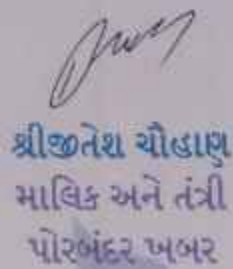 શ્રીજીતેશ ચૌહાણ
માલિક અને તંત્રી
પોરબંદર ખબર